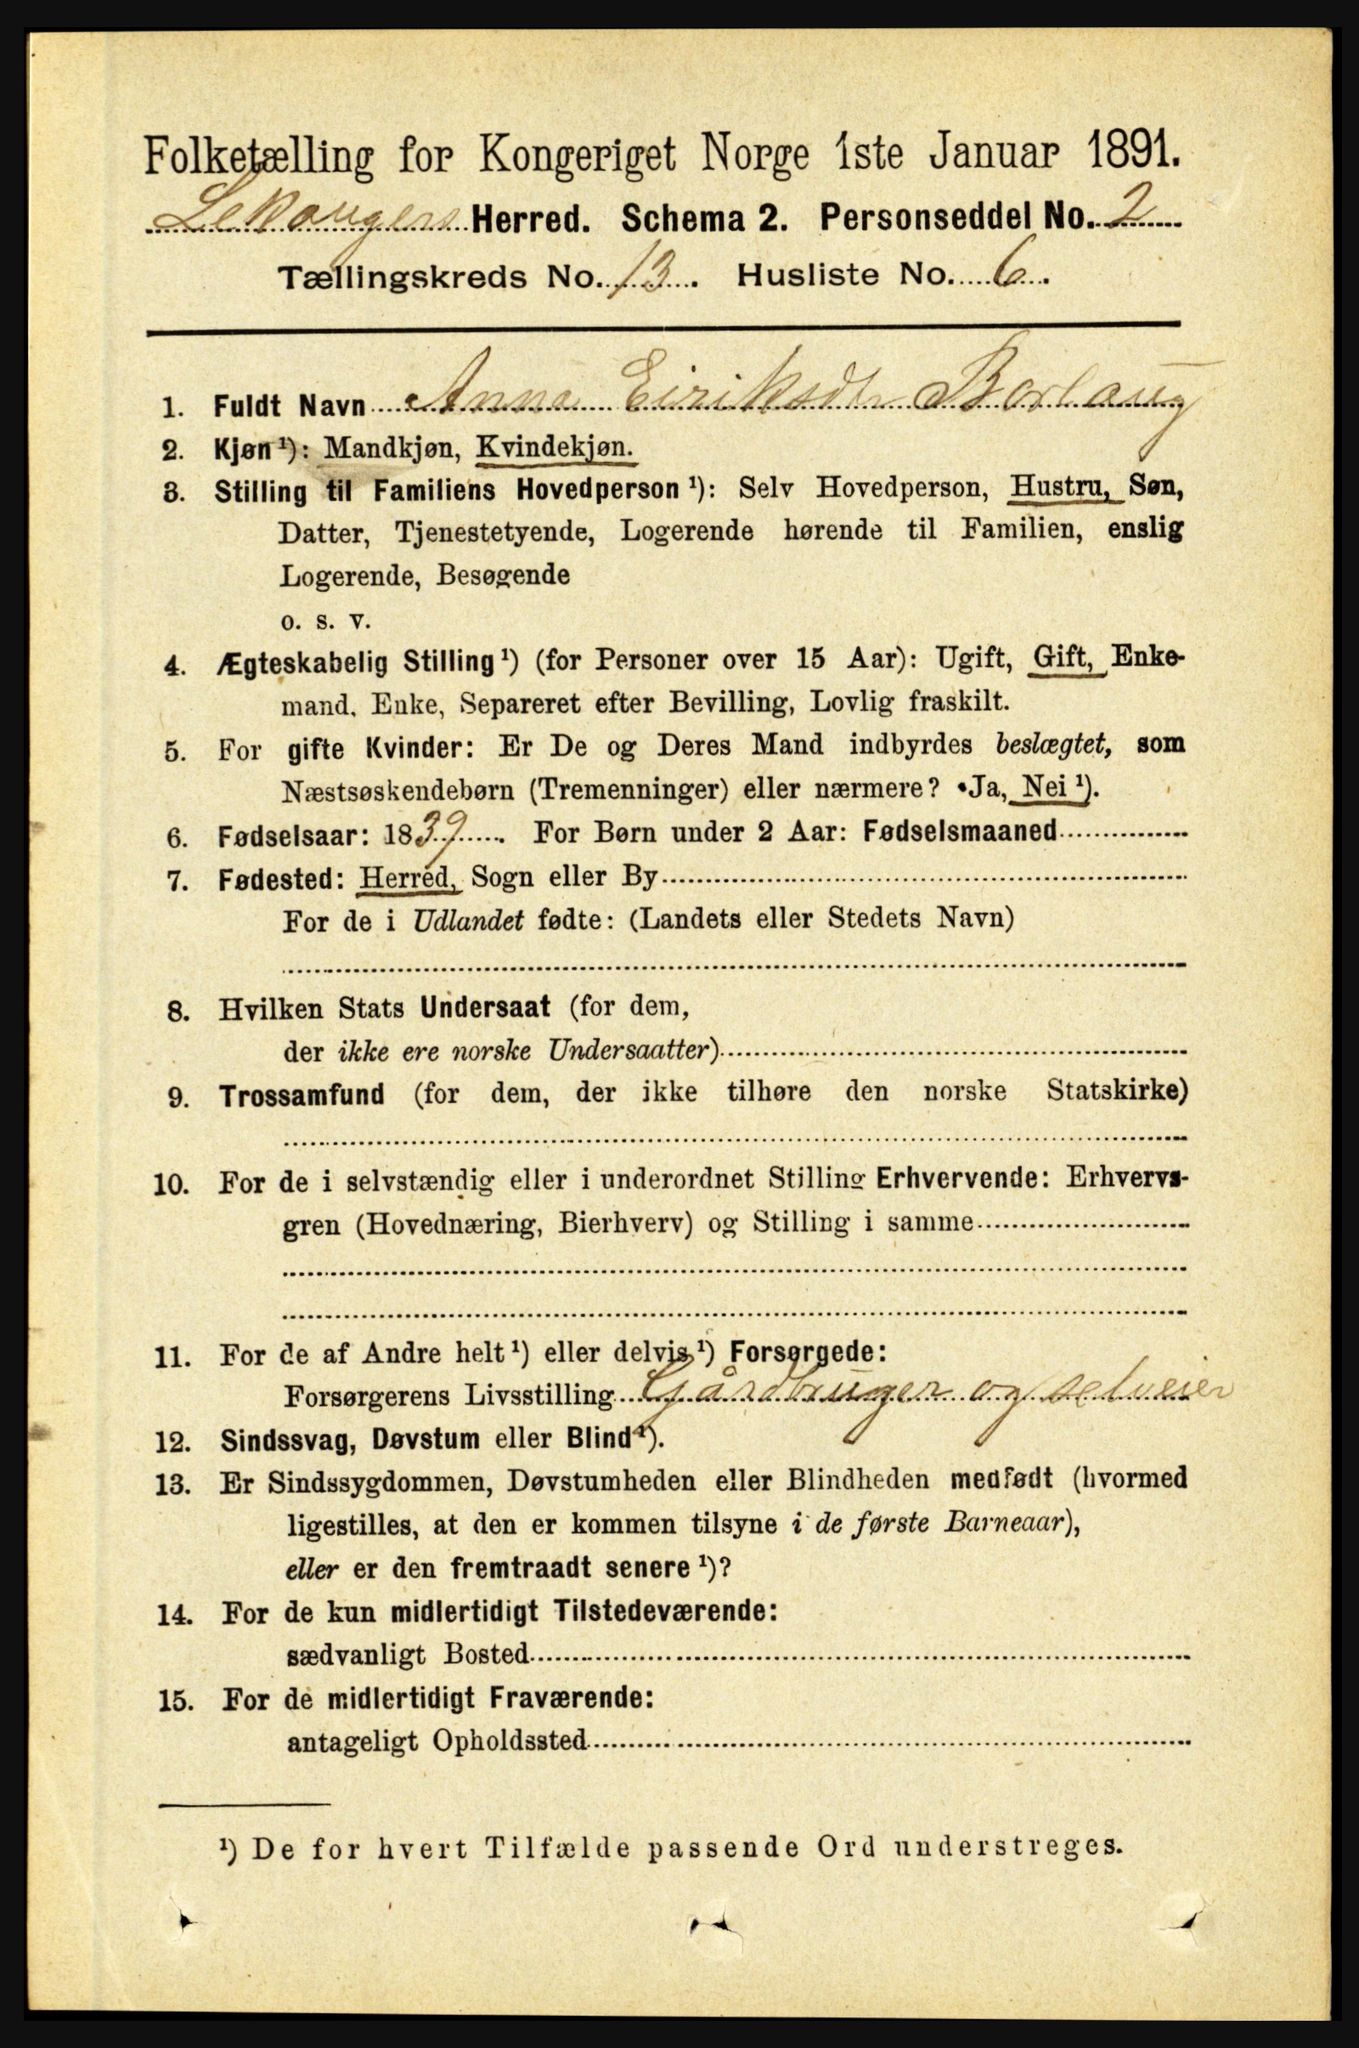 Folketælling for Kongeriget Norge 1ste Januar 1891.
Lekangers Herred. Schema 2. Personseddel No. 2
Tællingskreds No. 13. Husliste No. 6.
1. Fuldt Navn Anna Eiriksdr Borlaug
2. Kjøn¹): Mandkjøn, Kvindekjøn.
3. Stilling til Familiens Hovedperson¹): Selv Hovedperson, Hustru, Søn,
Datter, Tjenestetyende, Logerende hørende til Familien, enslig
Logerende, Besøgende
o. s. v.
4. Ægteskabelig Stilling¹) (for Personer over 15 Aar): Ugift, Gift, Enke-
mand, Enke, Separeret efter Bevilling, Lovlig fraskilt.
5. For gifte Kvinder: Er De og Deres Mand indbyrdes beslægtet, som
Næstsøskendebørn (Tremenninger) eller nærmere? Ja, Nei¹).
6. Fødselsaar: 1839. For Børn under 2 Aar: Fødselsmaaned
7. Fødested: Herred, Sogn eller By
For de i Udlandet fødte: (Landets eller Stedets Navn)
8. Hvilken Stats Undersaat (for dem,
der ikke ere norske Undersaatter)
9. Trossamfund (for dem, der ikke tilhøre den norske Statskirke)
10. For de i selvstændig eller i underordnet Stilling Erhvervende: Erhvervs-
gren (Hovednæring, Bierhverv) og Stilling i samme
11. For de af Andre helt¹) eller delvis¹) Forsørgede:
Forsørgerens Livsstilling Gårdbruger og selveier
12. Sindssvag, Døvstum eller Blind¹).
13. Er Sindssygdommen, Døvstumheden eller Blindheden medfødt (hvormed
ligestilles, at den er kommen tilsyne i de første Barneaar),
eller er den fremtraadt senere¹)?
14. For de kun midlertidigt Tilstedeværende:
sædvanligt Bosted
15. For de midlertidigt Fraværende:
antageligt Opholdssted
¹) De for hvert Tilfælde passende Ord understreges.